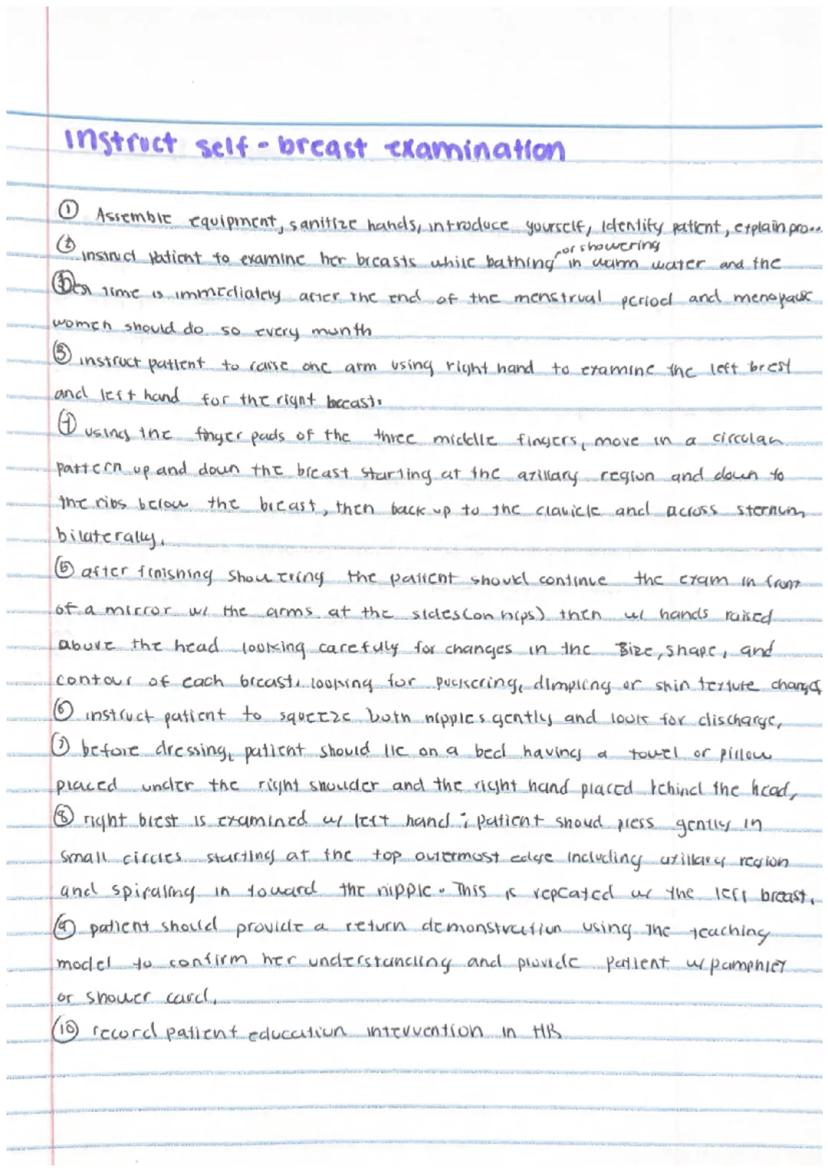 Instruct self-breast examination
① Assemble equipment, sanitize hands, introduce yourself, Identify patient, explain pro...
② instruct patient to examine her breasts while bathing or showering in warm water and the
③ best time is immediately after the end of the menstrual period and menopause
women should do so every month
③ instruct patient to raise one arm using right hand to examine the left brest
and left hand for the right breast.
④ using the finger pads of the three middle fingers, move in a circular
pattern up and down the breast starting at the axillary region and down to
the ribs below the breast, then back up to the clavicle and across sternum,
bilaterally.
⑤ after finishing showering the patient should continue the exam in front
of a mirror w/ the arms at the sides(on hips) then w/ hands raised
above the head looking carefuly for changes in the size, shape, and
contour of each breast. looking for puckering, dimpling or skin texture changes
⑥ instruct patient to squeeze both nipples gently and look for discharge,
⑦ before dressing, patient should lie on a bed having a towel or pillow
placed under the right shoulder and the right hand placed behind the head,
⑧ right brest is examined w/ left hand; patient shoud press gently in
small circles starting at the top outermost edge including axillary region
and spiraling in toward the nipple. This is repeated w/ the left breast.
⑨ patient should provide a return demonstration using the teaching
model to confirm her understanding and provide patient w/ pamphlet
or shower card.
⑩ record patient education intervention in HR